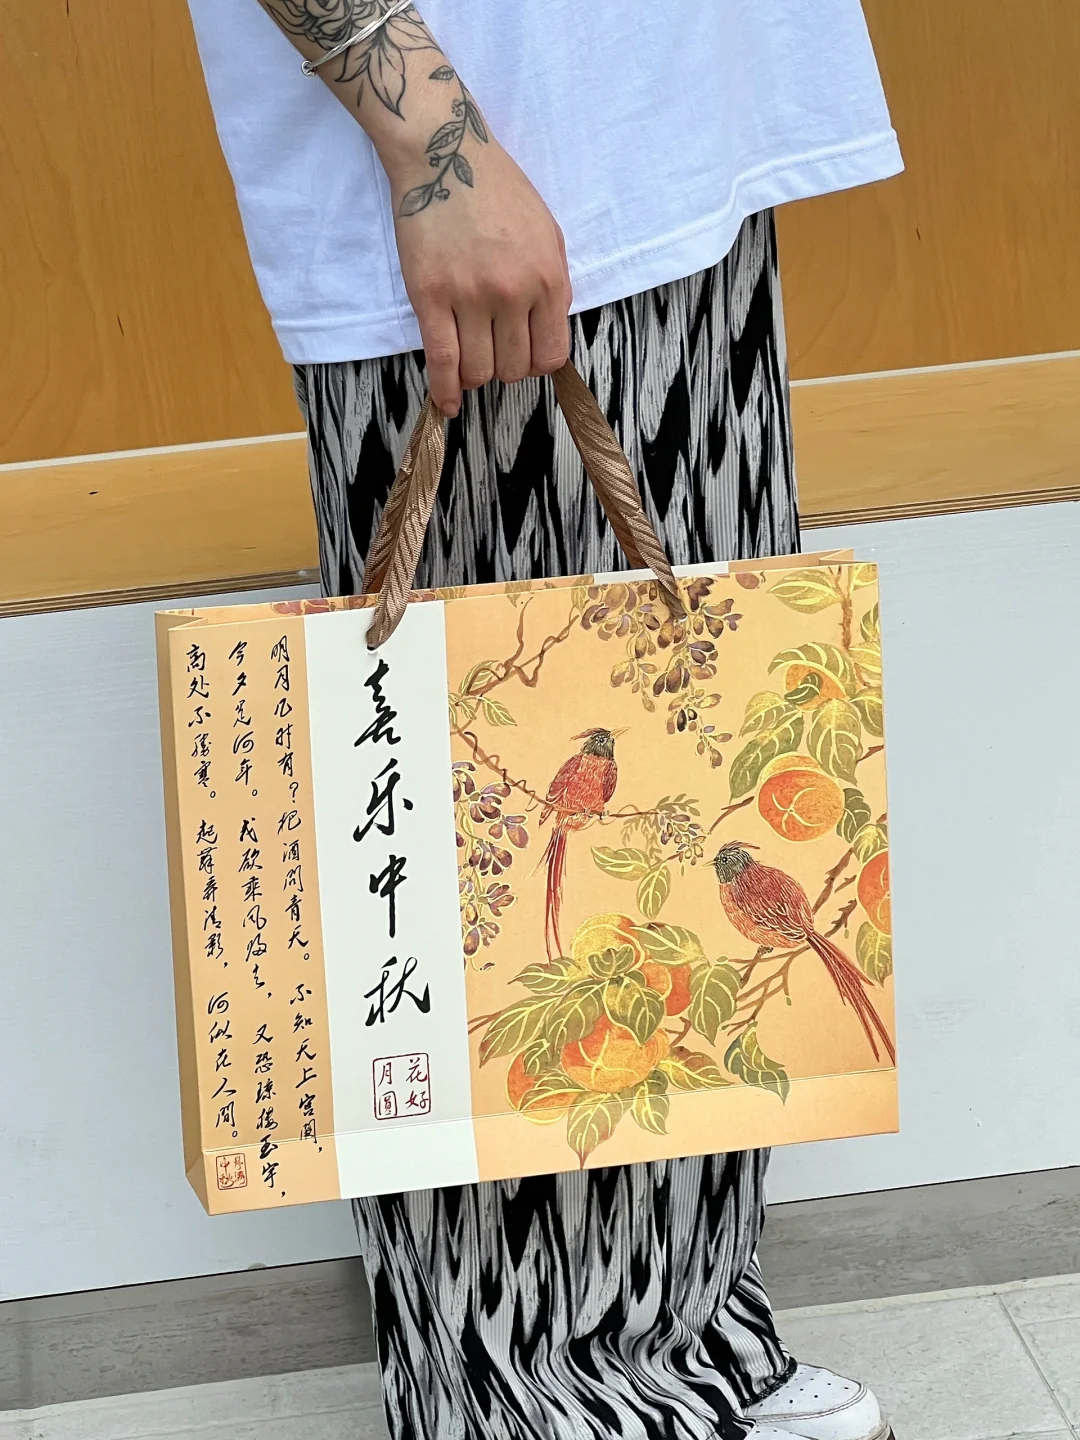 喜乐中秋
花好
月圓
明月几时有？把酒问青天。不知天上宫阙，
今夕是何年。我欲乘风归去，又恐琼楼玉宇，
高处不胜寒。起舞弄清影，何似在人间。
月满
中秋